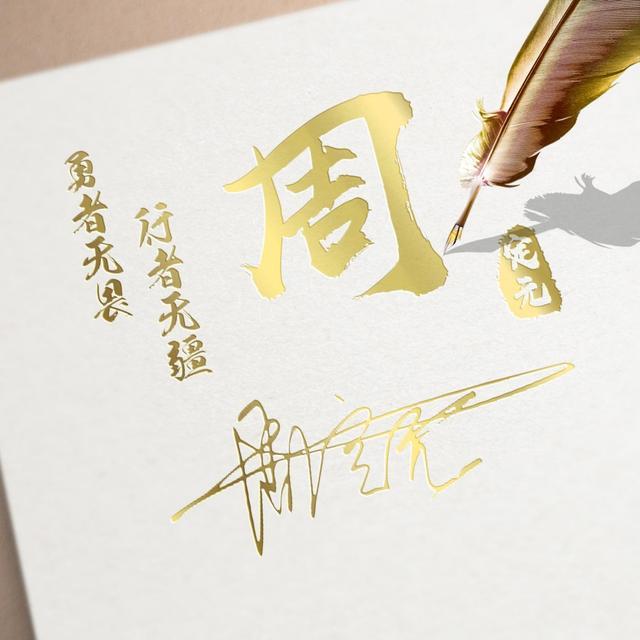 勇者无畏
行者无疆
周
元